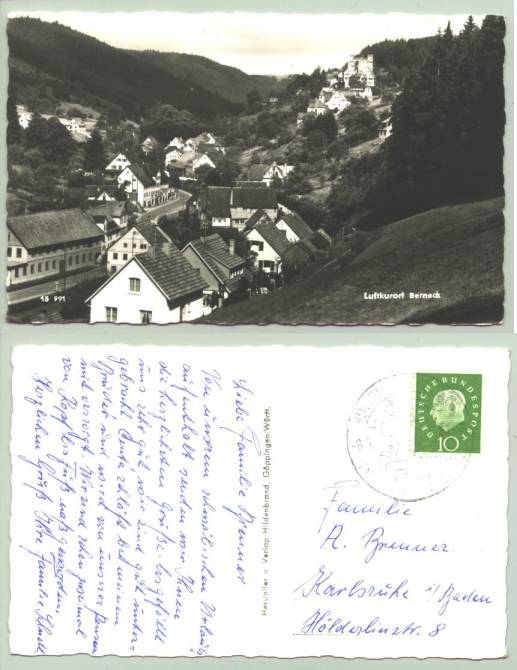 18 991
Luftkurort Berneck
Liebe Familie Brenner
Von unserem schwäbischen Urlaubs
aufenthalt senden wir Ihnen
die herzlichsten Grüße. Es gefällt
uns sehr gut, wir sind gut unter-
gebracht. Tante schläft bei meinem
Bruder und wird von unserer Pension
mit versorgt. Wir sind schon zweimal
von Kopf bis Fuß naß geworden.
Herzlichen Gruß Ihre Familie Schnell
Hersteller u. Verlag: Hildenbrand, Göppingen/Württ.
DEUTSCHE BUNDESPOST
10
Familie
A. Brenner
Karlsruhe i/Baden
Hölderlinstr. 8